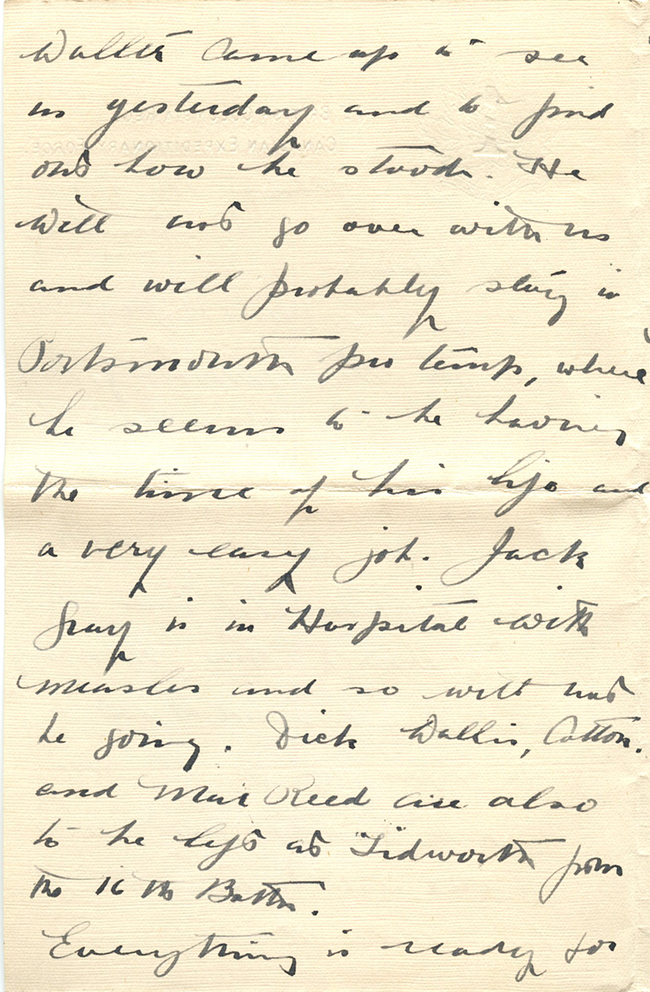 Walter came up to see
us yesterday and to find
out how he stood. He
will not go over with us
and will probably stay in
Portsmouth pro temp, where
he seems to be having
the time of his life and
a very easy job. Jack
Gray is in Hospital with
measles and so will not
be going. Dick Wallis, Cotton.
and Reed are also
to be left at Tidworth from
the 16th Battn.
Everything is ready for
CANADIAN EXPEDITIONARY FORCE